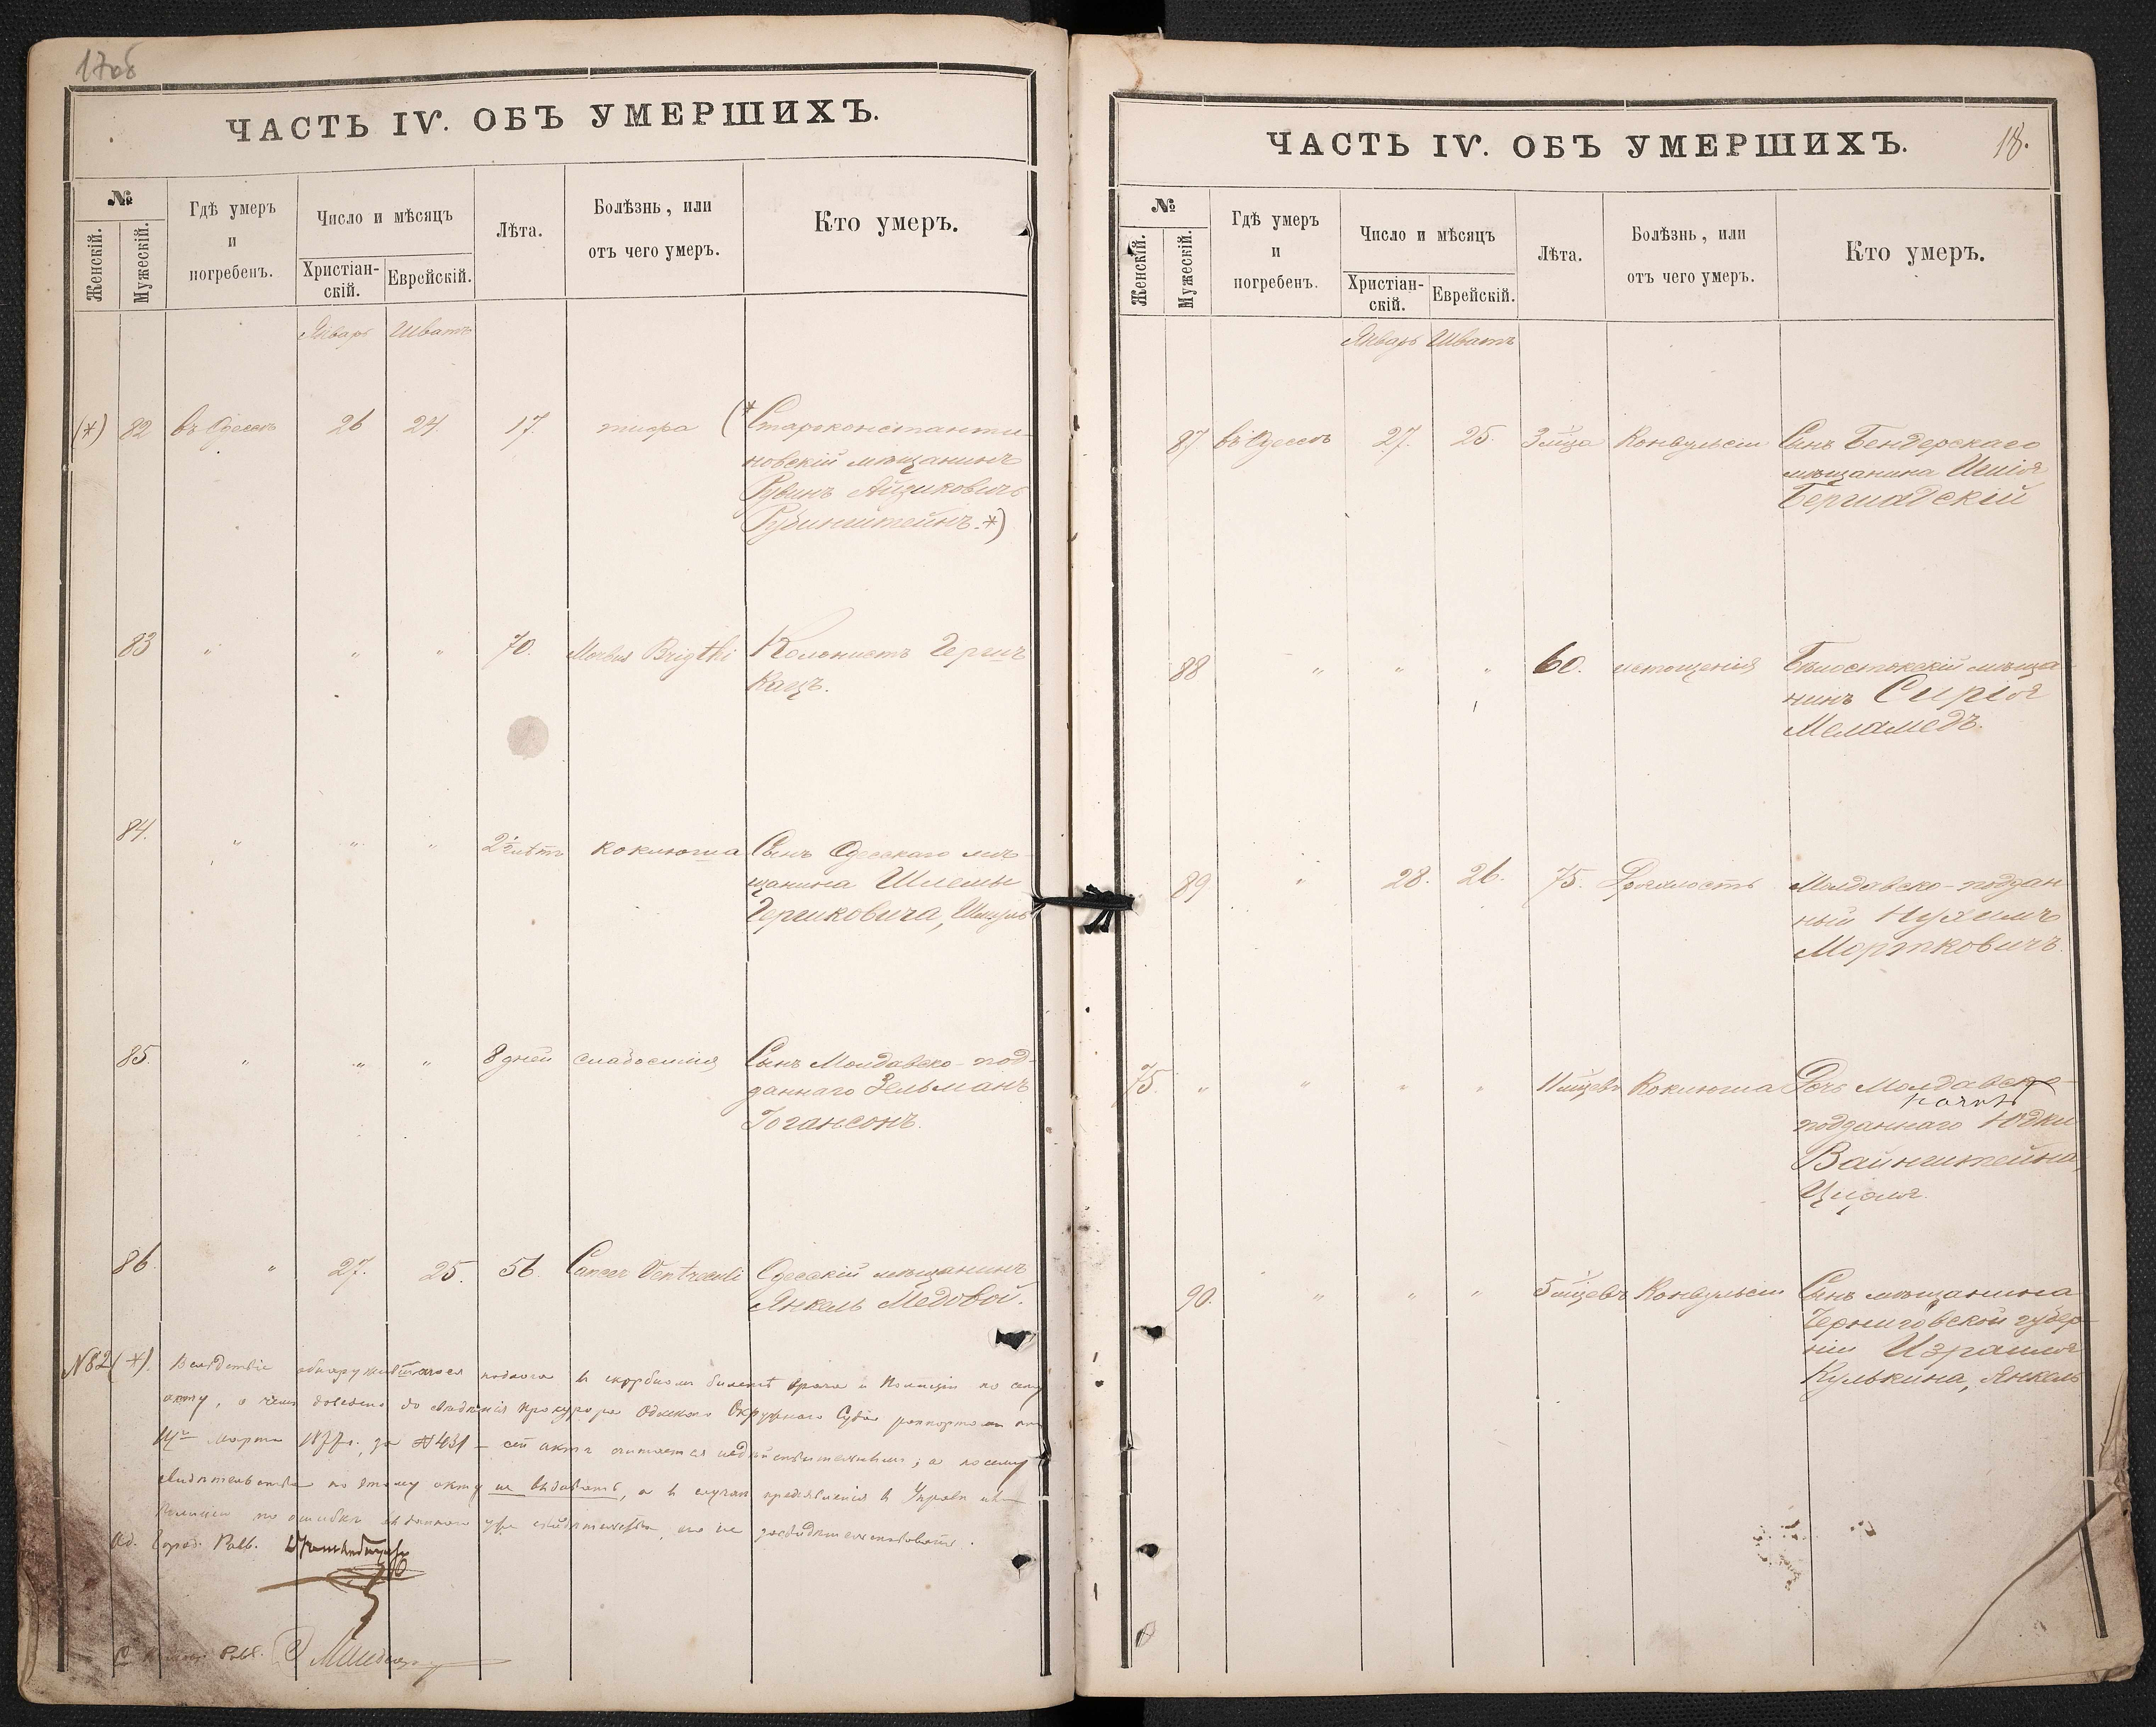 17об
ЧАСТЬ IV. ОБЪ УМЕРШИХЪ.
№
Женскій.
Мужескій.
Гдѣ умеръ
и
погребенъ.
Число и мѣсяцъ
Христіан-
скій.
Еврейскій.
Лѣта.
Болѣзнь, или
отъ чего умеръ.
Кто умеръ.
Январь Шватъ
(*) 82 въ Одессѣ 26 24. 17. тифа (*Староконстанти-
новскій мѣщанинъ
Рувинъ Айзиковичъ
Рубинштейнъ.*)
83 " " " 70. Morbus Brigthi Колонистъ Гершъ
Кацъ.
84. " " " 2 лѣтъ коклюша Сынъ Одесскаго мѣ-
щанина Шлемы
Гершковича, Шмуль
85. " " " 8 дней слабостія Сынъ Молдавско-под-
даннаго Зельманъ
Іогансонъ.
86. " 27. 25. 56. Cancer Ventriculi Одесскій мѣщанинъ
Янкель Медовой.
№82(*). Вслѣдствіе обнаружившагося подлога въ скорбномъ билетѣ врача и Полиціи по сему
акту, о чемъ доведено до свѣдѣнія Прокурора Одесскаго Окружнаго Суда рапортомъ
14го Марта 1877 г. за №431 – сей актъ считается недѣйствительнымъ; а посему
свидѣтельства по этому акту не выдавать, а въ случаѣ предъявленія въ Управѣ
по ошибкѣ выданнаго уже свидѣтельства, его не засвидѣтельствовать.
Од. Город. Равв.
Равв.
ЧАСТЬ IV. ОБЪ УМЕРШИХЪ.
18.
№
Женскій.
Мужескій.
Гдѣ умеръ
и
погребенъ.
Число и мѣсяцъ
Христіан-
скій.
Еврейскій.
Лѣта.
Болѣзнь, или
отъ чего умеръ.
Кто умеръ.
Январь Шватъ
87 въ Одессѣ 27. 25. 3 мѣца Конвульсіи Сынъ Бендерскаго
мѣщанина Исшія
Бершадскій
88 " " " 60. истощенія Бѣлостокскій мѣща-
нинъ Сирія
Меламедъ.
89 " 28. 26. 75. Дряхлость Молдавско-поддан-
ный Нухимъ
Мортковичъ.
75. " " " " 11 мѣцевъ Коклюша Дочь Молдавско-
подданнаго Юдки
Вайнштейна,
Ципля.
90. " " " 5 мѣцевъ Конвульсіи Сынъ мѣщанина
Черниговской губер-
ніи Израиля
Кулькина, Янкель